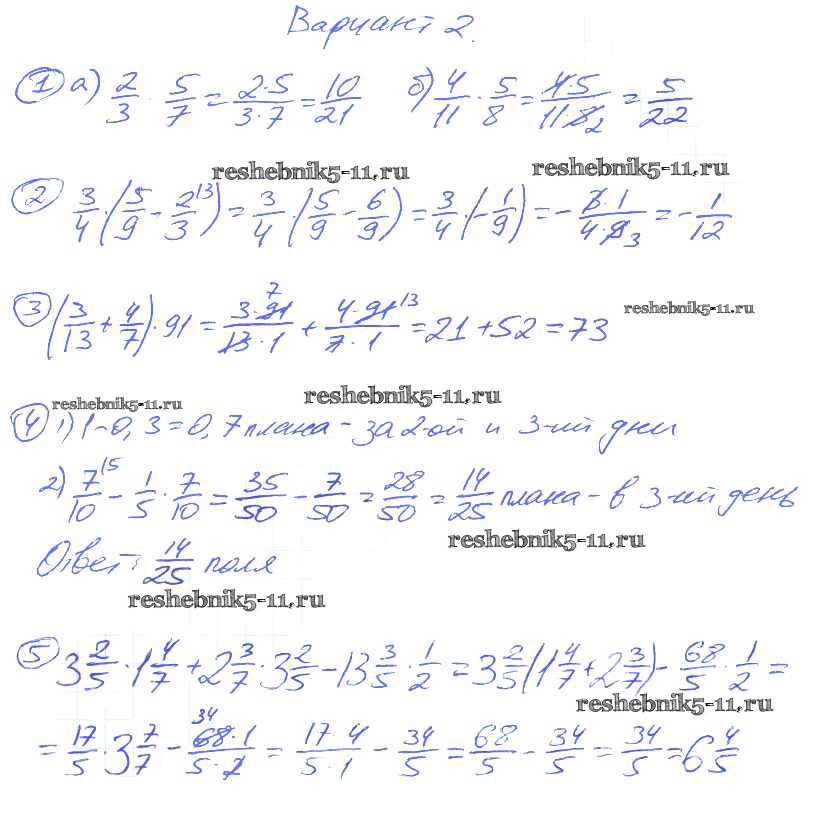 Вариант 2.
① а) 2/3 · 5/7 = 2·5/3·7 = 10/21 б) 4/11 · 5/8 = 4·5/11·8 2 = 5/22
reshebnik5-11.ru reshebnik5-11.ru
② 3/4 · (5/9 - 2/3 \3) = 3/4 · (5/9 - 6/9) = 3/4 · (-1/9) = - 3·1/4·9 3 = - 1/12
③ (3/13 + 4/7) · 91 = 3·91 7/13·1 + 4·91 13/7·1 = 21 + 52 = 73 reshebnik5-11.ru
reshebnik5-11.ru reshebnik5-11.ru
④ 1) 1-0,3 = 0,7 плана - за 2-ой и 3-ий дни
2) 7/10 \5 - 1/5 · 7/10 = 35/50 - 7/50 = 28/50 = 14/25 плана - в 3-ий день
reshebnik5-11.ru
Ответ: 14/25 поля
reshebnik5-11.ru
⑤ 3 2/5 · 1 4/7 + 2 3/7 · 3 2/5 - 13 3/5 · 1/2 = 3 2/5 (1 4/7 + 2 3/7) - 68/5 · 1/2 =
reshebnik5-11.ru
= 17/5 · 3 7/7 - 68 34·1/5·2 = 17 4/5·1 - 34/5 = 68/5 - 34/5 = 34/5 = 6 4/5